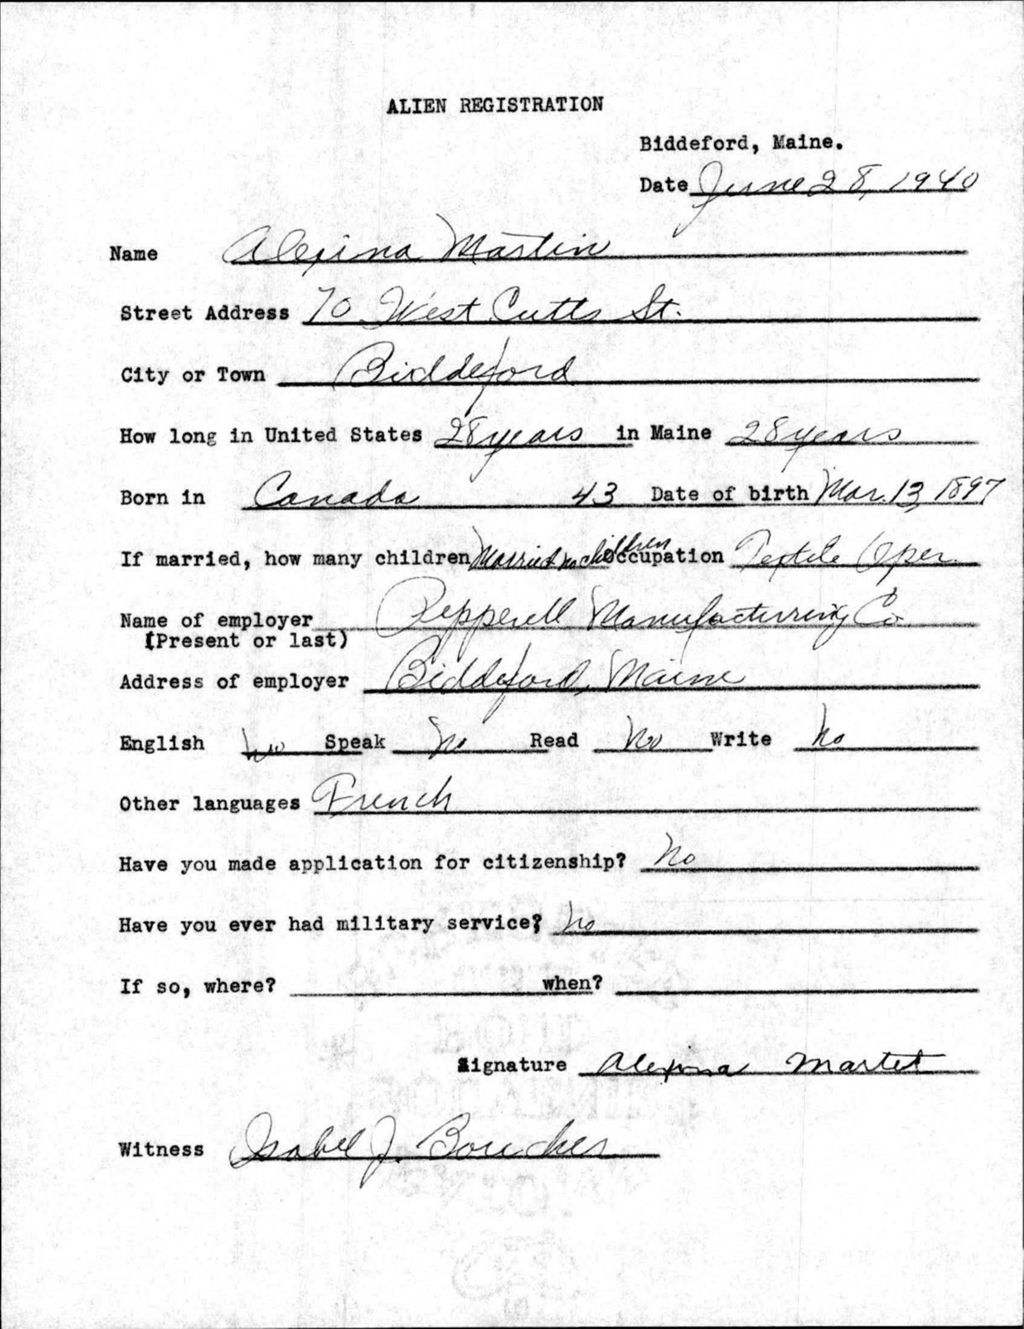 ALIEN REGISTRATION
Biddeford, Maine.
Date June 28, 1940
Name Alexina Martin
Street Address 70 West Cutts St.
City or Town Biddeford
How long in United States 28 years in Maine 28 years
Born in Canada 43 Date of birth Mar. 13, 1897
If married, how many children Married no children Occupation Textile Oper.
Name of employer Pepperell Manufacturing Co.
(Present or last)
Address of employer Biddeford, Maine
English no Speak No Read No Write No
Other languages French
Have you made application for citizenship? No
Have you ever had military service? No
If so, where? when?
Signature Alexina Martet
Witness Isabel J. Boucher